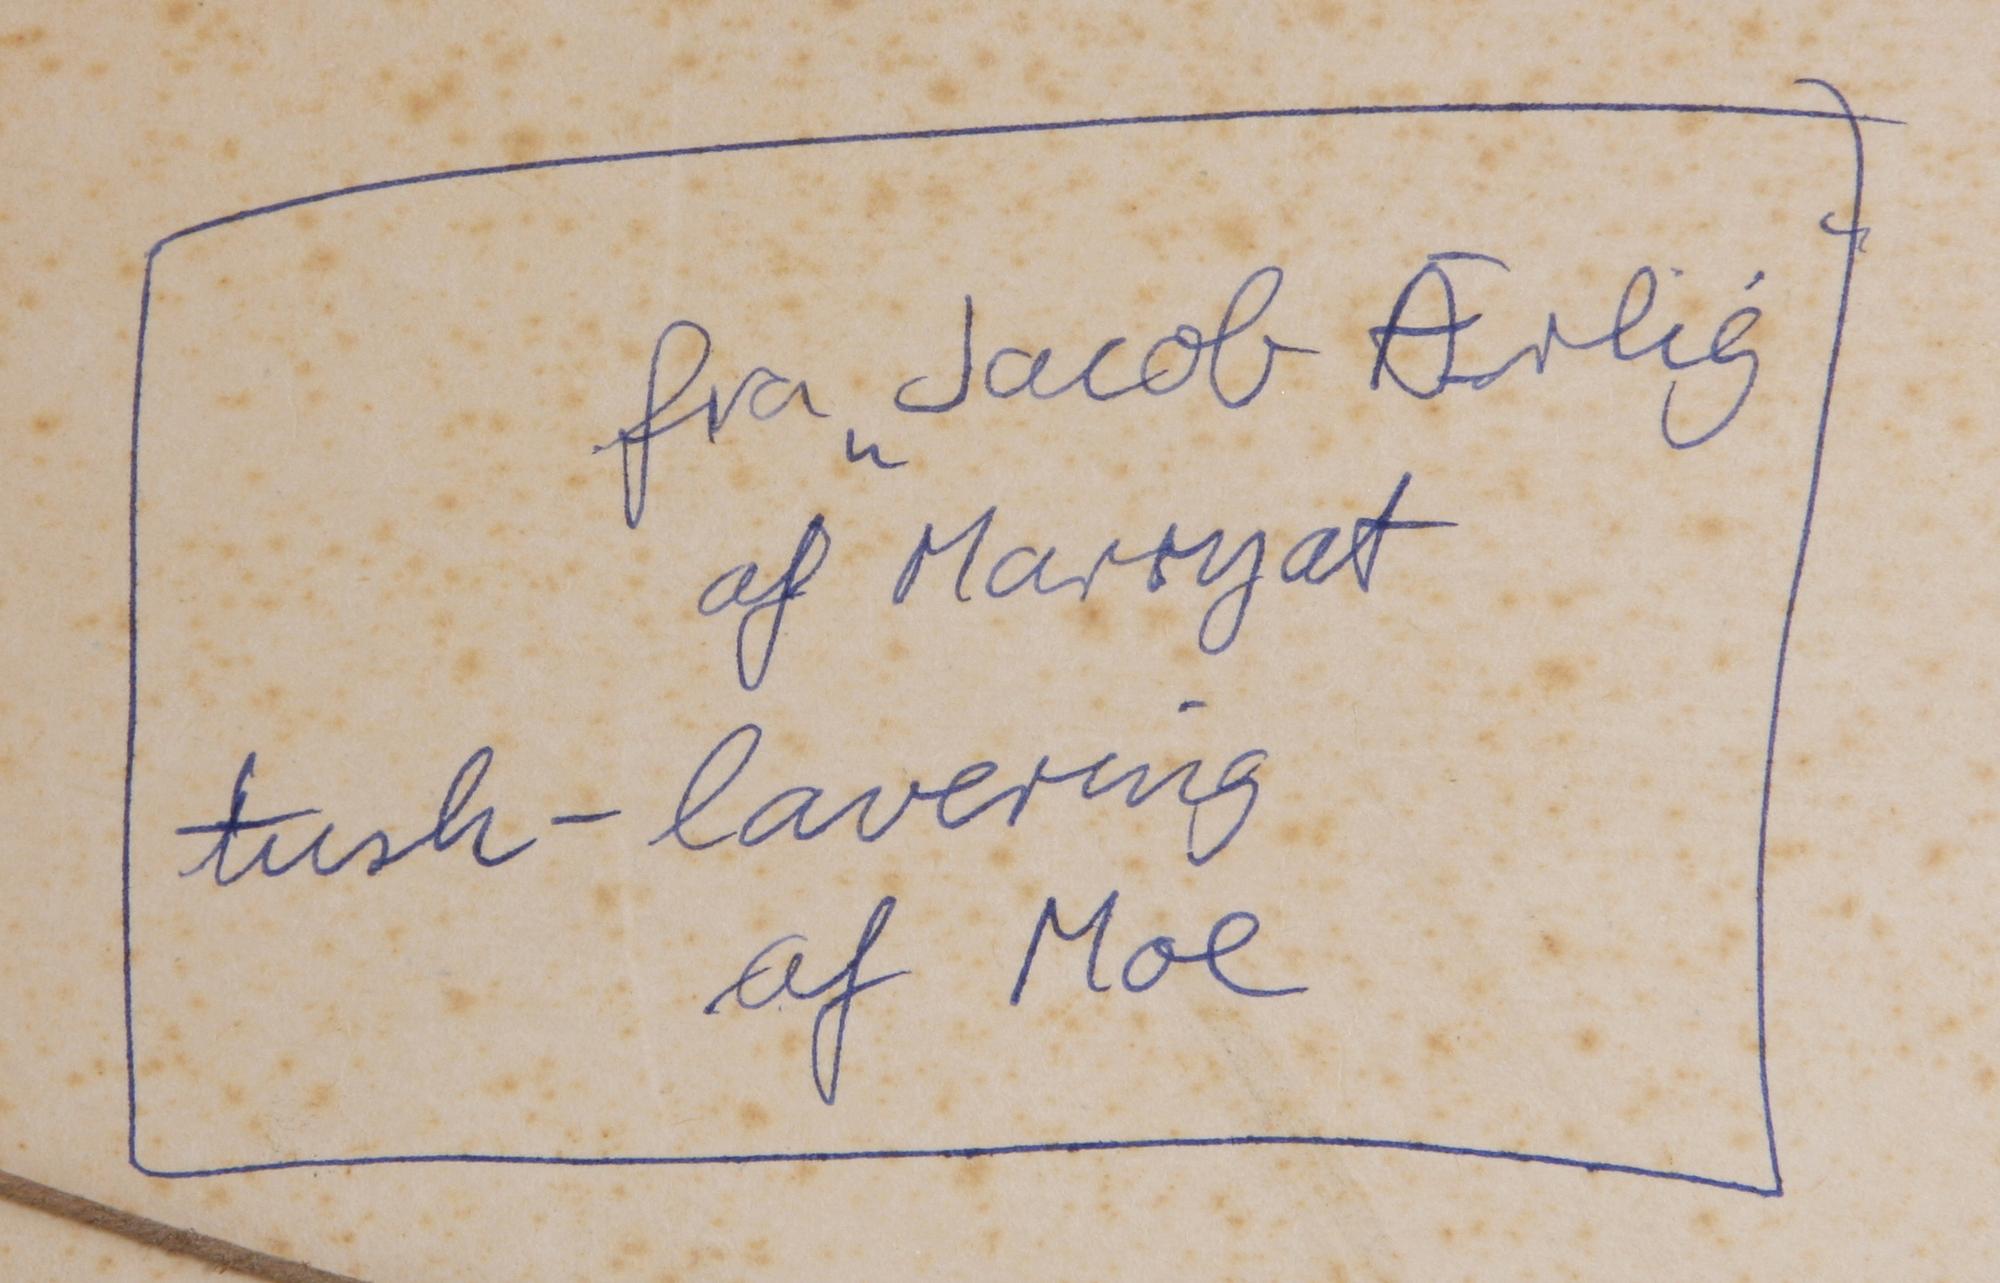 fra „Jacob Ærlig“
af Marryat
tush-lavering
af Moe